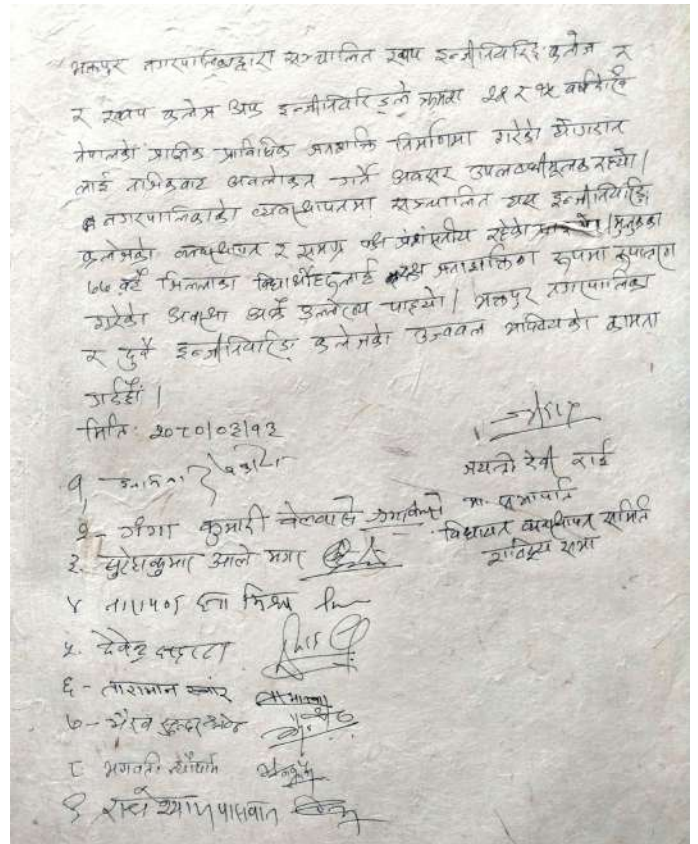 भक्तपुर नगरपालिकाद्वारा सञ्चालित ख्वप इन्जीनियरिङ्ग कलेज र
र ख्वप कलेज अफ इन्जीनियरिङ्गले क्रमशः २१ र १५ वर्षदेखि
नेपालको प्राविधिक जनशक्ति निर्माणमा गरेको योगदान
लाई नजिकबाट अवलोकन गर्ने अवसर उपलब्धीमूलक रह्यो।
नगरपालिकाको व्यवस्थापनमा सञ्चालित यस इन्जीनियरिङ्ग
कलेजको व्यवस्थापन र समग्र पक्ष प्रशंसनीय रहेको मुलुकका
७७ वटै जिल्लाका विद्यार्थीहरूलाई दक्ष जनशक्तिका रूपमा रूपान्तरण
गरेको अवस्था अर्को उल्लेख्य पाइयो। भक्तपुर नगरपालिका
र दुवै इन्जीनियरिङ्ग कलेजको उज्ववल भविष्यको कामना
गर्दछौं।
मिति: २०८०/०३/१३
जयन्ती देवी राई
मा. सभापति
विधायन व्यवस्थापन समिति
राष्ट्रिय सभा
१,
२- गंगा कुमारी बेलवासे
३. सुरेशकुमार आले मगर
४ नारायण दत्त मिश्र
५. देवेन्द्र
६- तारामान स्वाँर
७- भैरव सुन्दर श्रेष्ठ
८ भगवती न्यौपाने
९ राधेश्याम पासवान